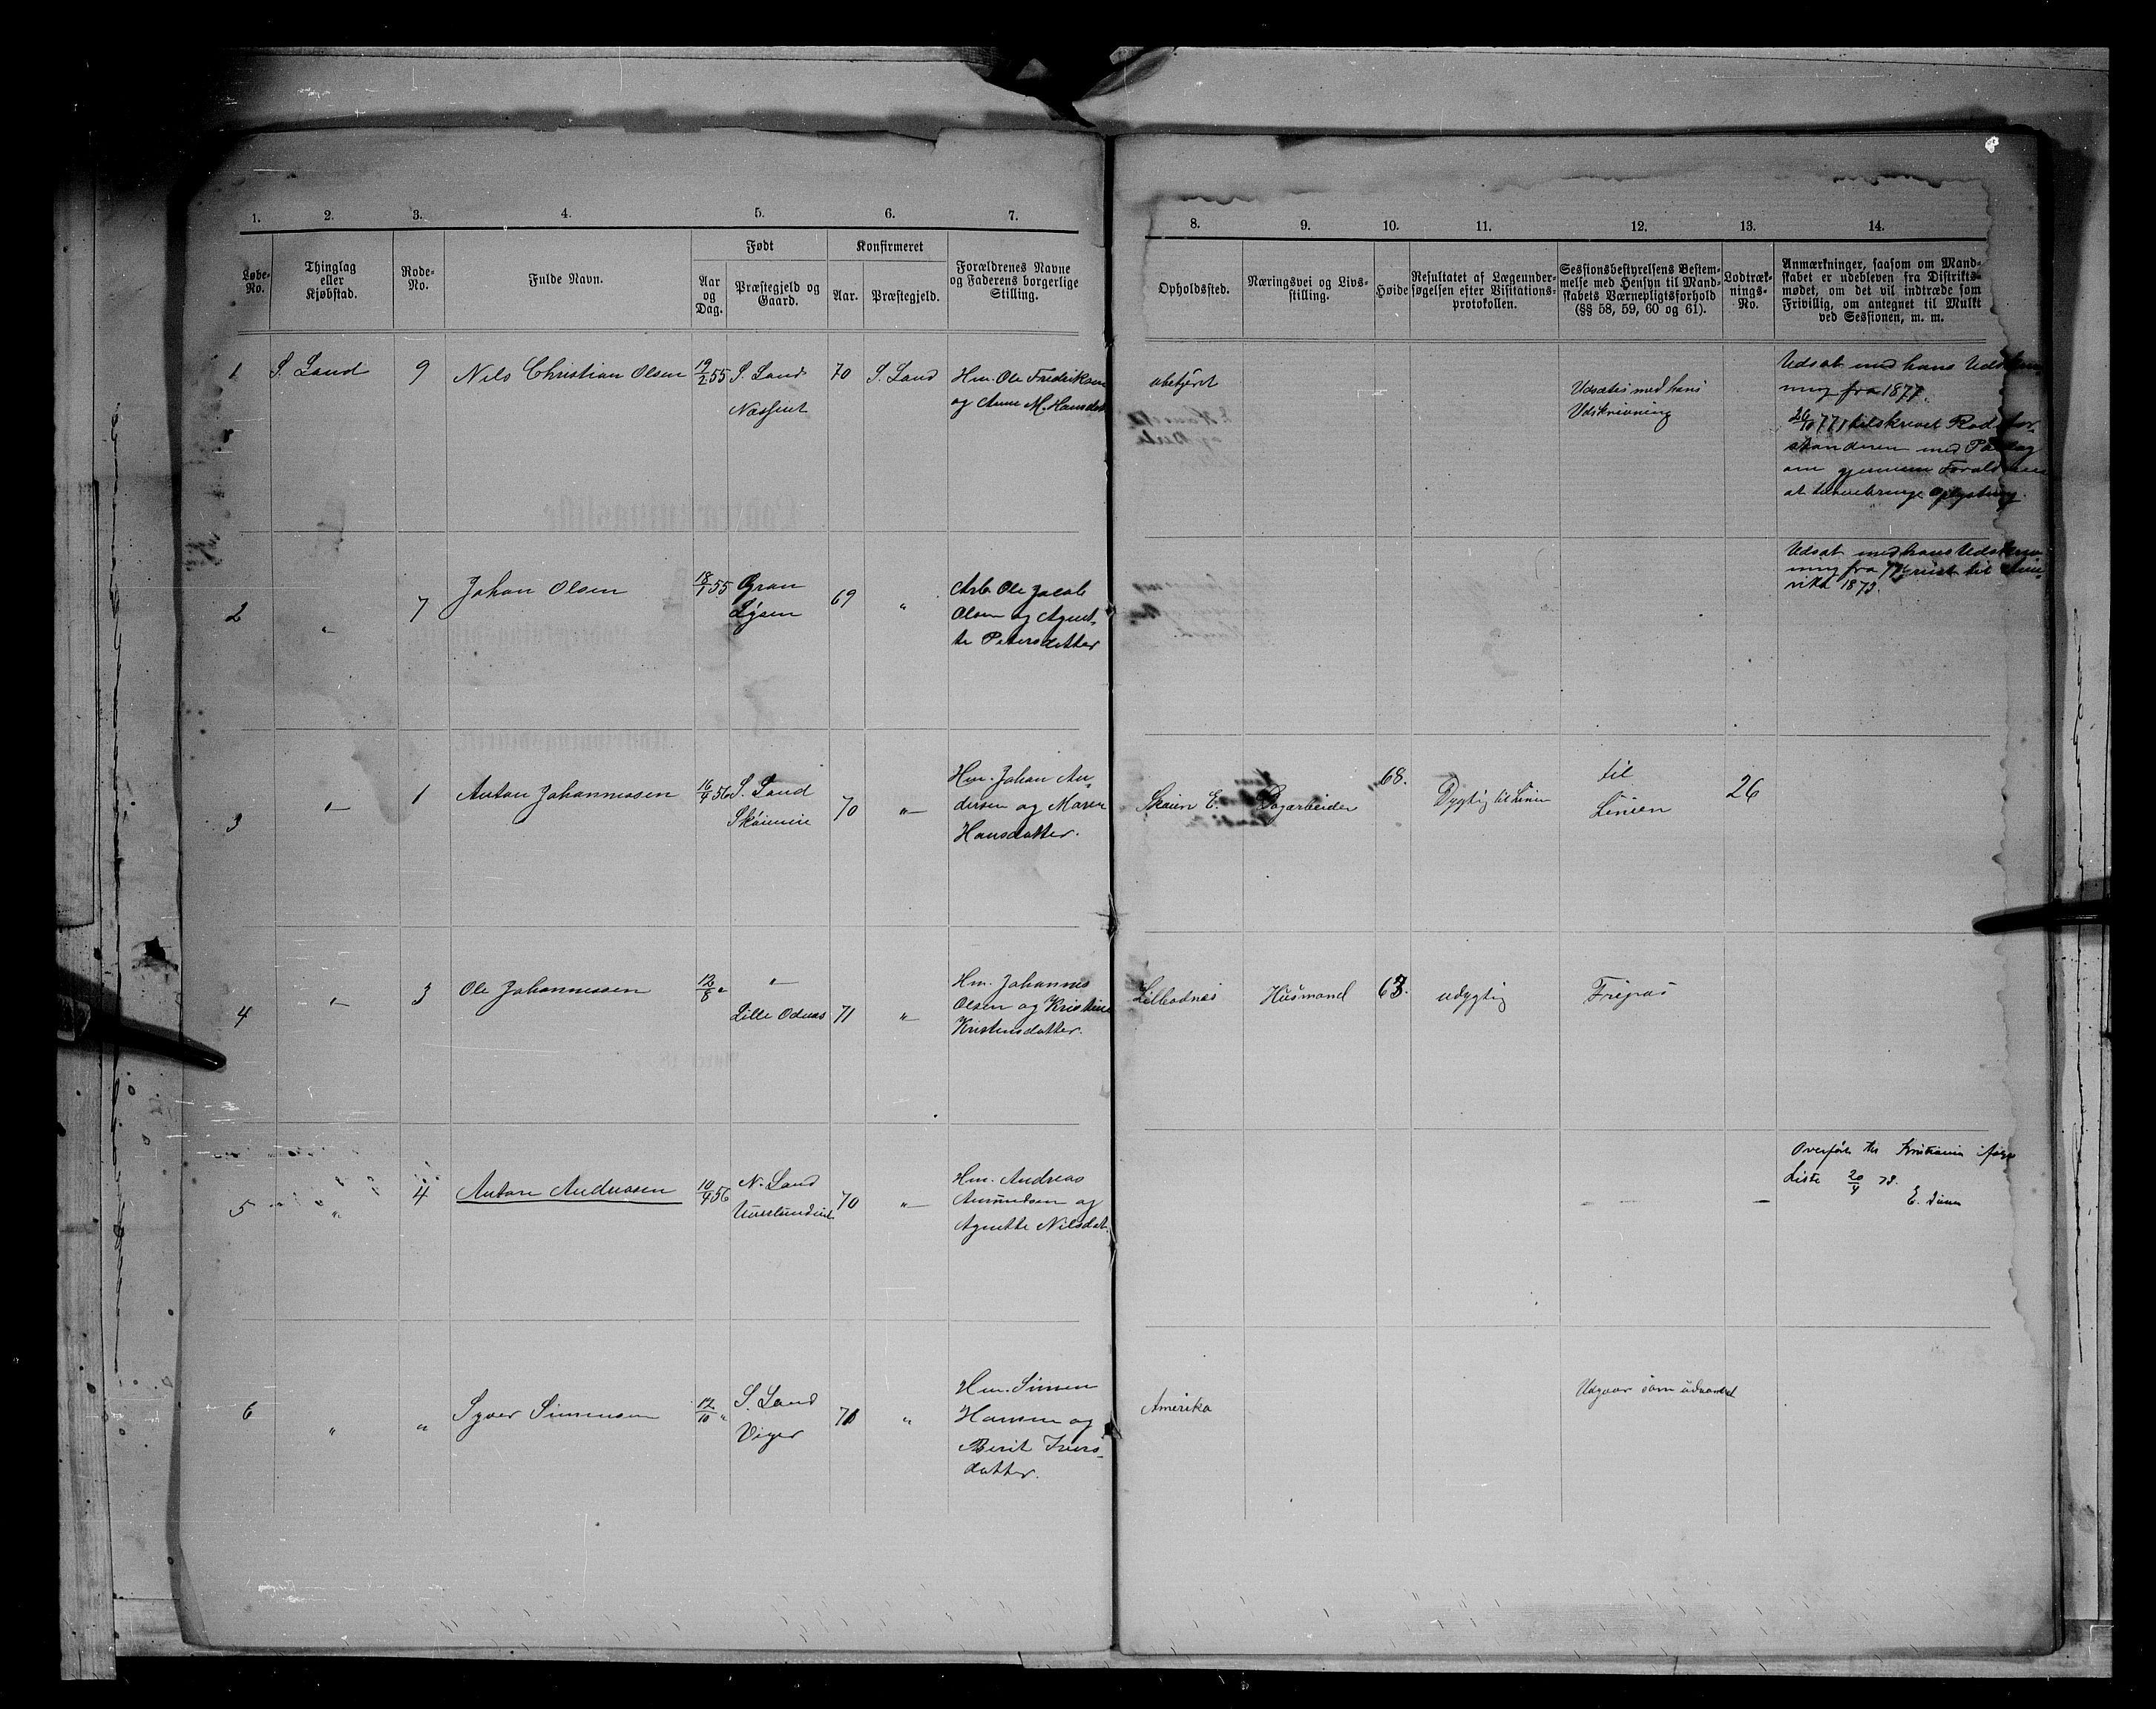 1. 2. 3. 4. 5. 6. 7. 8. 9. 10. 11. 12. 13. 14.
Løbe-
No.
Thinglag
eller
Kjøbstad.
Rode-
No.
Fulde Navn.
Født
Aar
og
Dag.
Præstegjeld og
Gaard.
Konfirmeret
Aar.
Præstegjeld.
Forældrenes Navne
og Faderens borgerlige
Stilling.
Opholdssted.
Næringsvei og Livs-
stilling.
Høide
Resultatet af Lægeunder-
søgelsen efter Visitations-
protokollen.
Sessionsbestyrelsens Bestem-
melse med Hensyn til Mand-
skabets Værnepligtsforhold
(§§ 58, 59, 60 og 61).
Lodtræk-
nings-
No.
Anmærkninger, saasom om Mand-
skabet er udebleven fra Distrikts-
mødet, om det vil indtræde som
Frivillig, om antegnet til Mulkt
ved Sessionen, m. m.
1 S. Land 9 Nils Christian Olsen 19/2 55 S. Land 70 S. Land Hm. Ole Fredriksen
og Anne M. Hansdat
ubekjent
Udsættes med hans
Udskrivning
Udsat med hans Udskriv-
ning fra 1877.
26/10 77 tilskrevet Rodefor-
standeren med Paalæg
om gjennem Forældrene
at tilveiebringe Oplysning.
2 " 7 Johan Olsen 18/7 55 Gran
Lysen
69 "
Arb. Ole Jacob
Olsen og Agnet-
te Petersdatter
Udsat med hans Udskriv-
ning fra 77 reist til Ame-
rika 1873.
3 " 1 Anton Johannessen 16/4 56 S. Land
70 "
Hm. Johan An-
dersen og Maren
Hansdatter.
Skøien E. Dagarbeider 68. Dygtig til Linien
til
Linien
26
4 " 3 Ole Johannessen 12/8 " "
Lille Odnæs 71 "
Hm. Johannes
Olsen og Kristine
Kristensdatter.
Lilleodnæs Husmand 63. udygtig Fripas
5 " 4 Anton Andreasen 10/4 56 N. Land
70 "
Hm. Andreas
Amundsen og
Agnethe Nilsdat.
Overført til Kristiania
Liste 20/4 78.
6 " " Syver Simensen 12/10 " S. Land
70 "
Hm. Simen
Hansen og
Berit Ivers-
datter.
Amerika
Udgaar som udvandret